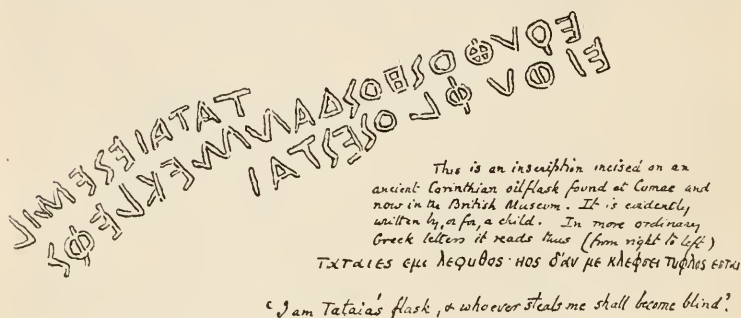 ΤΑΤΑΙΕΣΕΜΙΛ
ΕϘVΘΟΣΗΟΣΔΑΝΜΕΚLΕΦΣ
ΕΙΘVΦLΟΣΕΣΤΑΙ
This is an inscription incised on an
ancient Corinthian oilflask found at Cumae and
now in the British Museum. It is evidently
written by, or for, a child. In more ordinary
Greek letters it reads thus (from right to left)
Τατaιες εμι λεϙυθος· hος δ'άν με κλεφσει τυφλος εσται
'I am Tataia's flask, & whoever steals me shall become blind'.